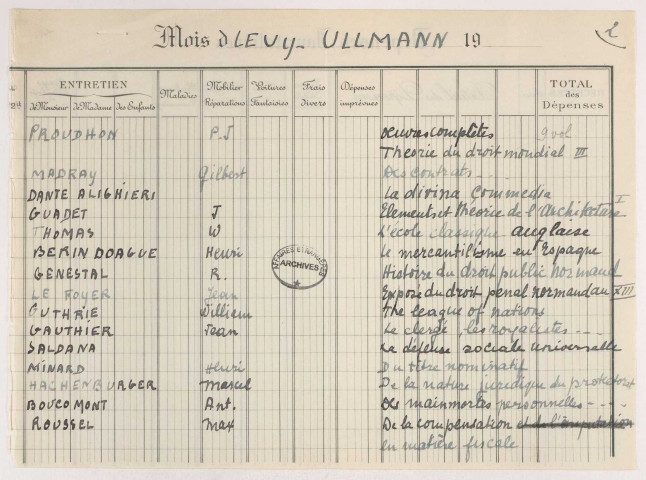 Mois d LEVY- ULLMANN 19 2
ENTRETIEN
de Monsieur de Madame des Enfants
Maladies
Mobilier Réparations
Voitures Fantaisies
Frais divers
Dépenses imprévues
TOTAL des Dépenses
PROUDHON P.J Oeuvres complètes 9 vol.
Theorie du droit mondial III
MADRAY Gilbert Des contrats - - -
DANTE ALIGHIERI La divina commedia
GUADET J Elements et théorie de l'Architecture I
THOMAS W L'école classique anglaise
BERINDOAGUE Henri Le mercantilisme en Espagne
GENESTAL R. Histoire du droit public normand
LE FOYER Jean Exposé du droit penal normand au XIII
GUTHRIE William The league of nations
GAUTHIER Jean Le clergé, les royalistes - - -
SALDANA La défense sociale universelle
MINARD Henri Du titre nominatif
HACHENBURGER Marcel De la nature juridique du protectorat
BOUCOMONT Ant. Des mainmortes personnelles - - - -
ROUSSEL Max De la compensation et de l'imputation
en matière fiscale
AFFAIRES ETRANGERES
ARCHIVES